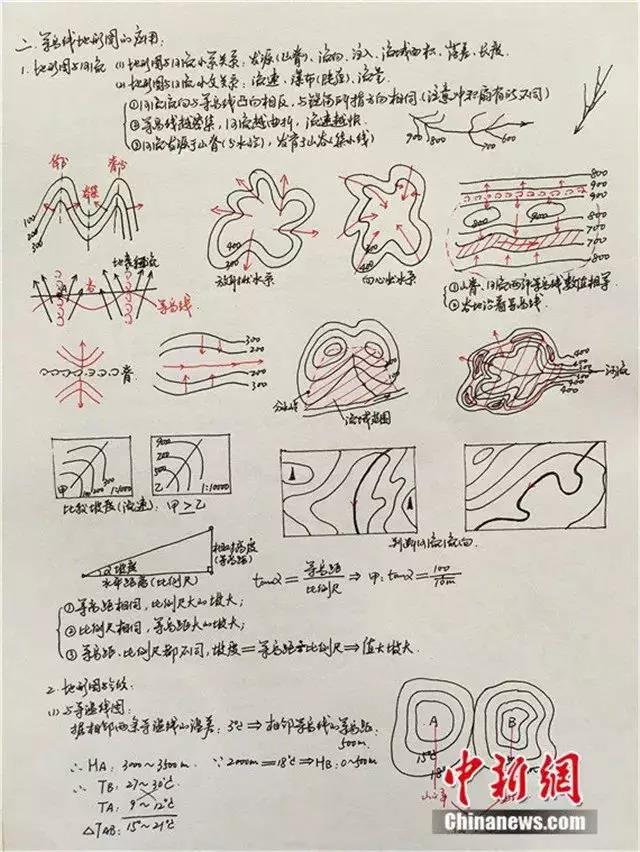 二.等高线地形图的应用.
1.地形图与河流 (1)地形图与河流水系关系:发源(山脊)、流向、注入、流域面积、落差、长度.
(2)地形图与河流水文关系:流速、瀑布(陡崖)、流量
①河流流向与等高线凸向相反,与
方向相同(注意冲积扇有所不同)
②等高线越密集,河流越曲折,流速越快
③河流发源于山脊(分水岭),发育于山谷(集水线)
900 800 700 600
100
200
300
400
300
放射状水系
400
300
向心状水系
800
900
900
800
700
700
800
①山脊、河流两岸等高线数值相等
②谷地沿着等高线.
谷
等高线
脊
300
200
200
300
分水岭
流域范围
400
500
河流
甲
100 200 300
1:10000
900
乙
1:10000
比较坡度(流速):甲>乙
判断河流流向.
α坡度
水平距离(比例尺)
相对高度
(等高距)
tanα=等高距/比例尺⇒甲:tanα=100/10m
①等高距相同,比例尺大的坡大;
②比例尺相同,等高距大的坡大;
③等高距、比例尺都不同,坡度=等高距乘比例尺⇒值大坡大.
2.地形图与气候.
(1)与等温线图:
据相邻两条等温线的温差:3℃⇒相邻等高线的等高距:
500m.
∴HA:3000~3500m. ∵2000m=18℃⇒HB:0~500m
∴TB:27~30℃
TA:9~12℃
ΔTAB:15~21℃
A
B
15℃
18℃
中新网
Chinanews.com